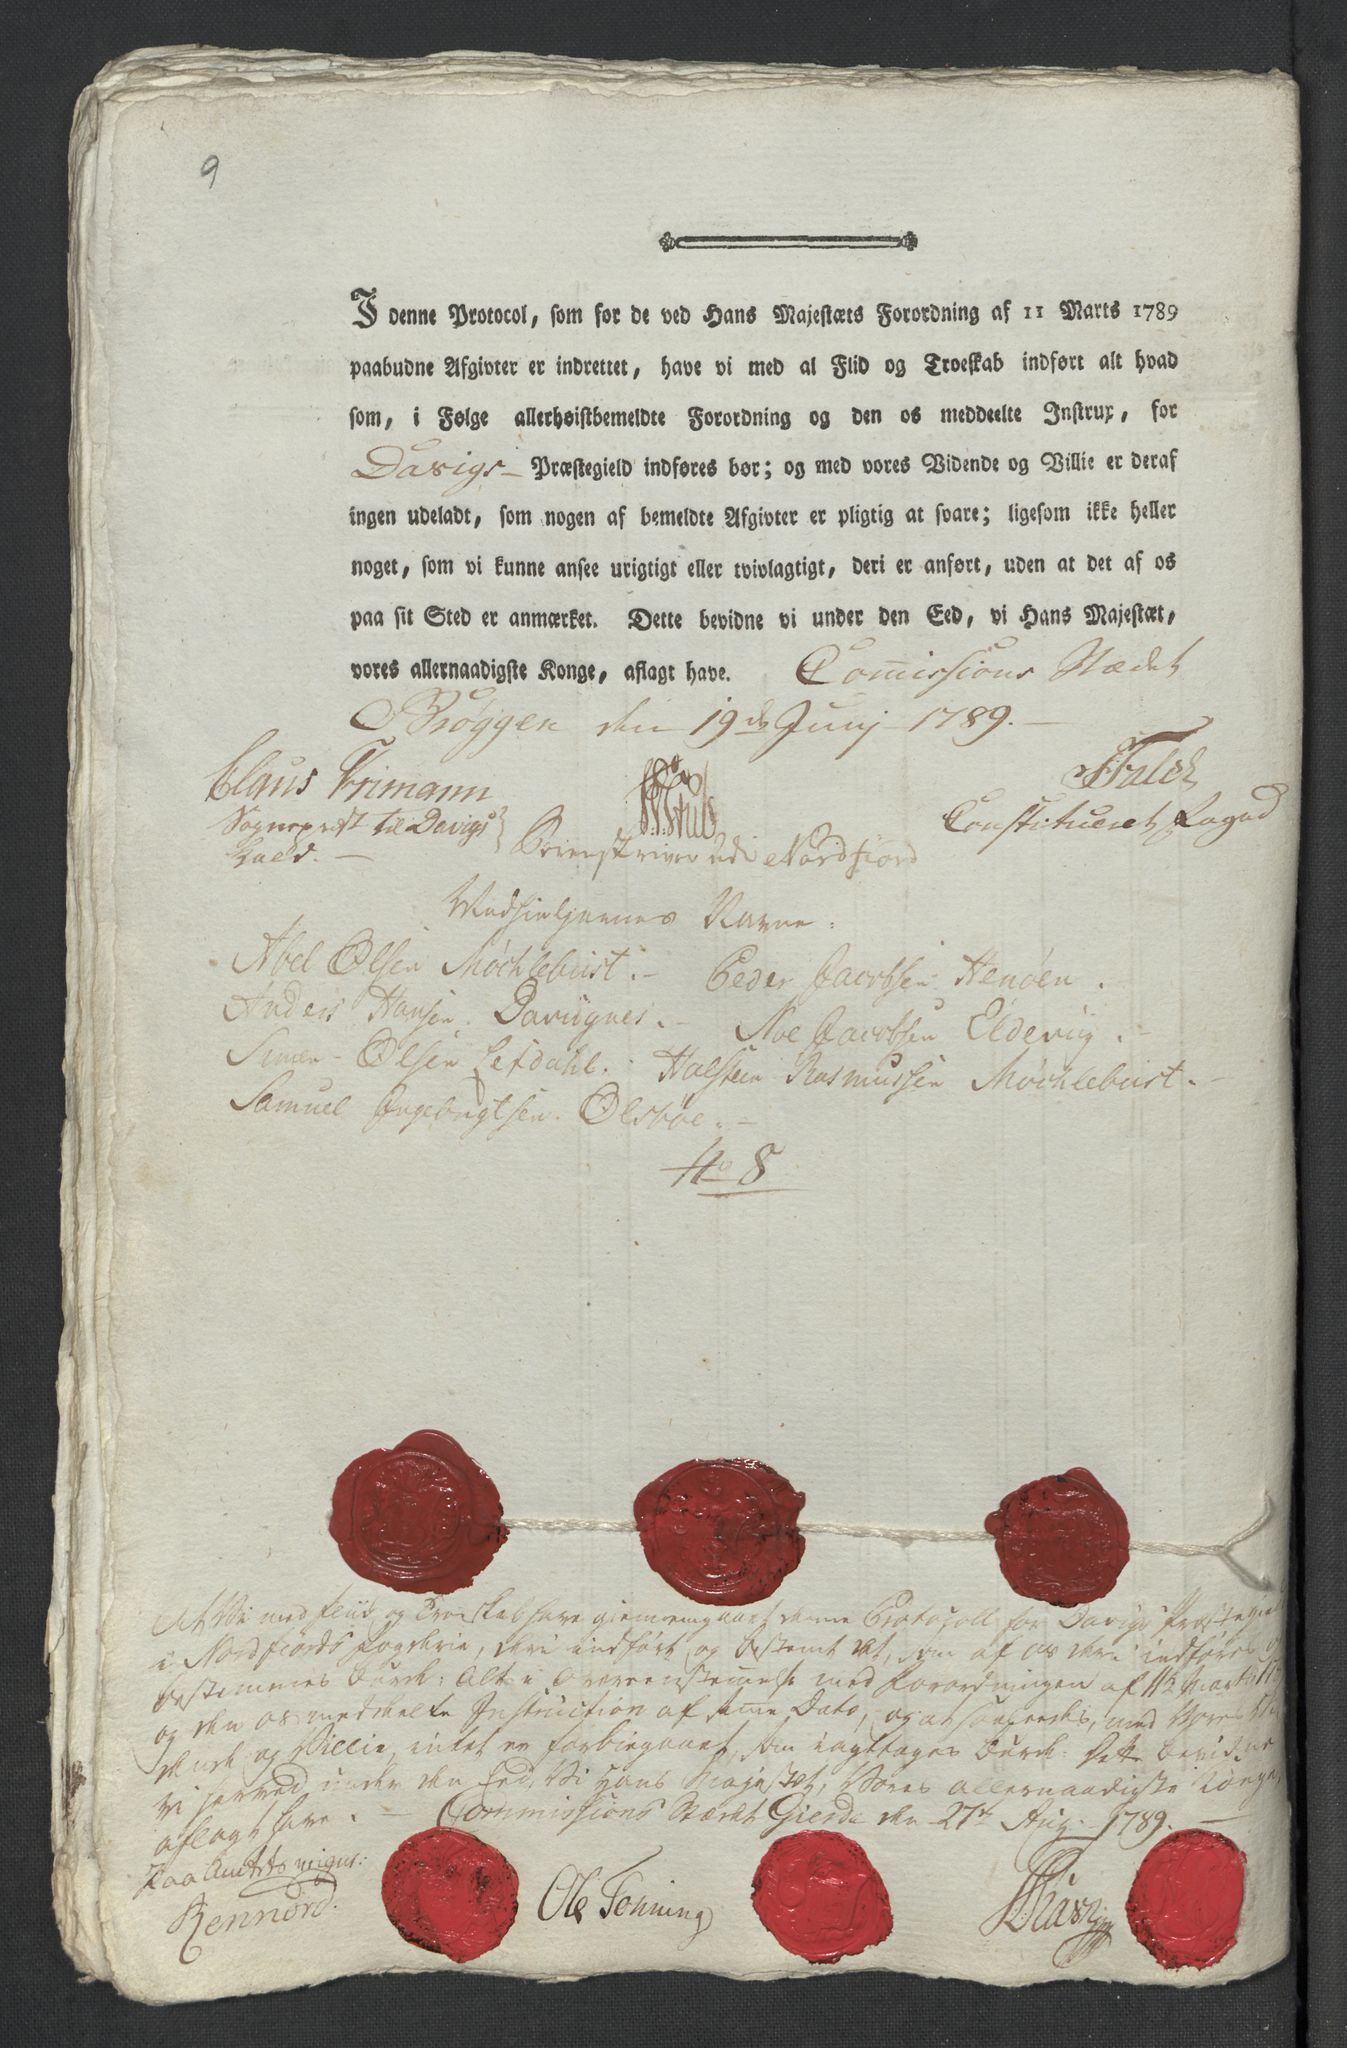 9
I denne Protocol, som for de ved Hans Majestæts Forordning af 11 Marts 1789
paabudne Afgivter er indrettet, have vi med al Flid og Troeskab indført alt hvad
som, i Følge allerhøistbemeldte Forordning og den os meddeelte Instrux, for
Davigs Præstegield indføres bør; og med vores Vidende og Villie er deraf
ingen udeladt, som nogen af bemeldte Afgivter er pligtig at svare; ligesom ikke heller
noget, som vi kunne ansee urigtigt eller tvivlagtigt, deri er anført, uden at det af os
paa sit Sted er anmærket. Dette bevidne vi under den Eed, vi Hans Majestæt,
vores allernaadigste Konge, aflagt have. Comissions Stædet
Bryggen den 19de Junj 1789.
Claus Frimann
Sogneprest til Davigs
Kald.
Sorenskriver udi Nordfiord
Falch
Constitueret Foged
Medhielpernes Navne:
Abel Olsen Möchlebust. Peder Jacobsen Henöen.
Anders Hansen Davignes. Ave Jacobsen Eldevig.
Simen Olsen Lefdahl. Halstein Rasmussen Möchlebust.
Samuel Ingebrigtsen Olsböe.
No 8
At Vi med fliid og Troeskab have giennemgaaet denne Protocoll for Davigs Præstegield
i Nordfiords Fogderie, deri indført og bestemt det, som af os deri indføres og
bestemmes burde: Alt i Overeensstemmelse med Forordningen af 11te Martii
og den os meddeelte Instruction af samme Dato, og at saaledes, med Vores
og Villie, intet er forbiegaaet, som iagttages burde: Det bevidne
vi herved under den Eed, Vi Hans Majestet, Vores allernaadigste Konge,
aflagt have. Commissions Stædet Gierde den 27de Aug: 1789.
Paa Amtets veigne:
Rennord.
Ole Fenning